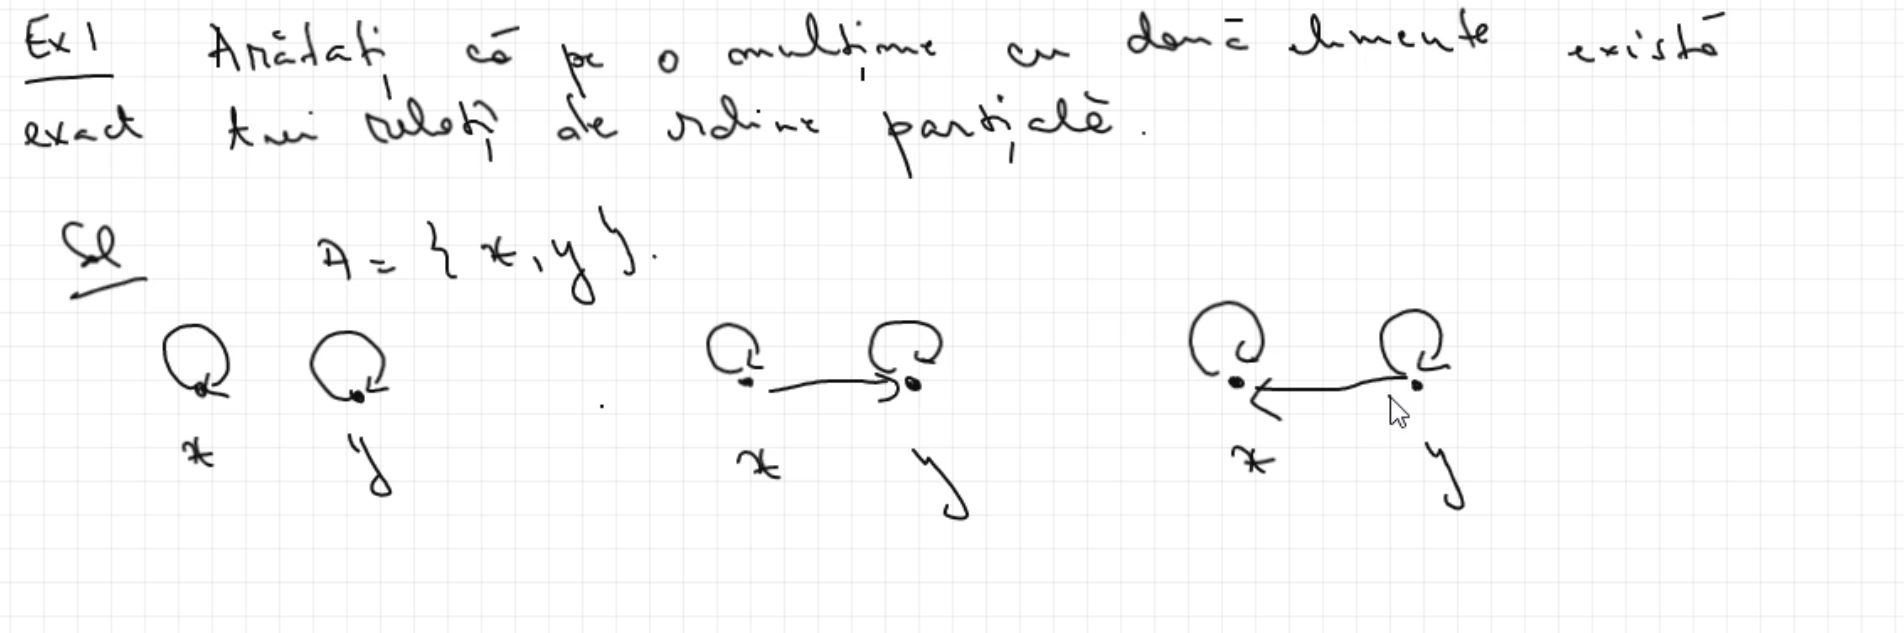 Ex 1 Arătați că pe o mulțime cu două elemente există
exact trei relații de ordine parțială.
Sol A = { x, y }.
x y x y x y